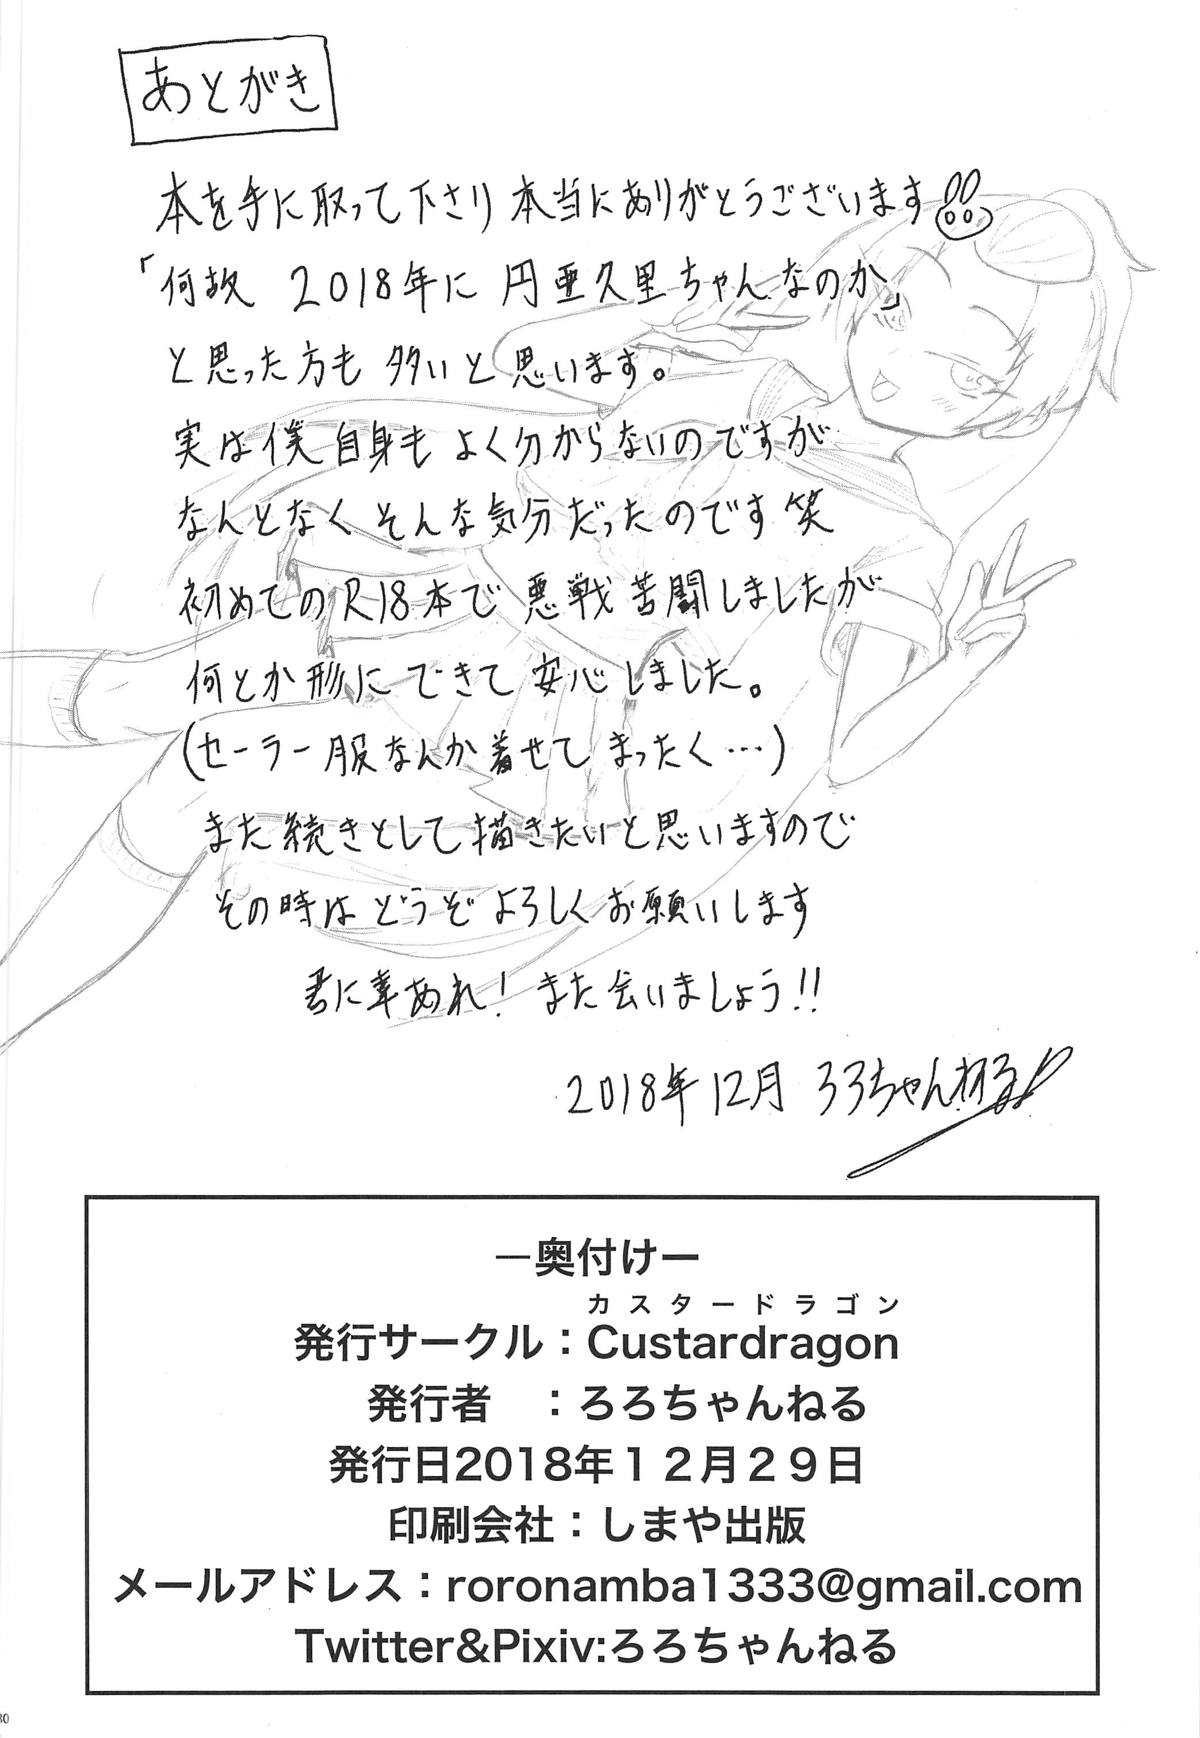 あとがき
本を手に取って下さり本当にありがとうございます
「何故 2018年に 円亜久里ちゃんなのか」
と思った方も多いと思います。
実は僕自身もよく分からないのですが
なんとなくそんな気分だったのです笑
初めてのR18本で悪戦苦闘しましたが
何とか形にできて安心しました。
(セーラー服なんか着せてまったく…)
また続きとして描きたいと思いますので
その時はどうぞよろしくお願いします
君に幸あれ! また会いましょう!!
2018年12月 ろろちゃんねる
―奥付けー
カスタードラゴン
発行サークル：Custardragon
発行者　：ろろちゃんねる
発行日2018年１２月２９日
印刷会社：しまや出版
メールアドレス：roronamba1333@gmail.com
Twitter&Pixiv:ろろちゃんねる